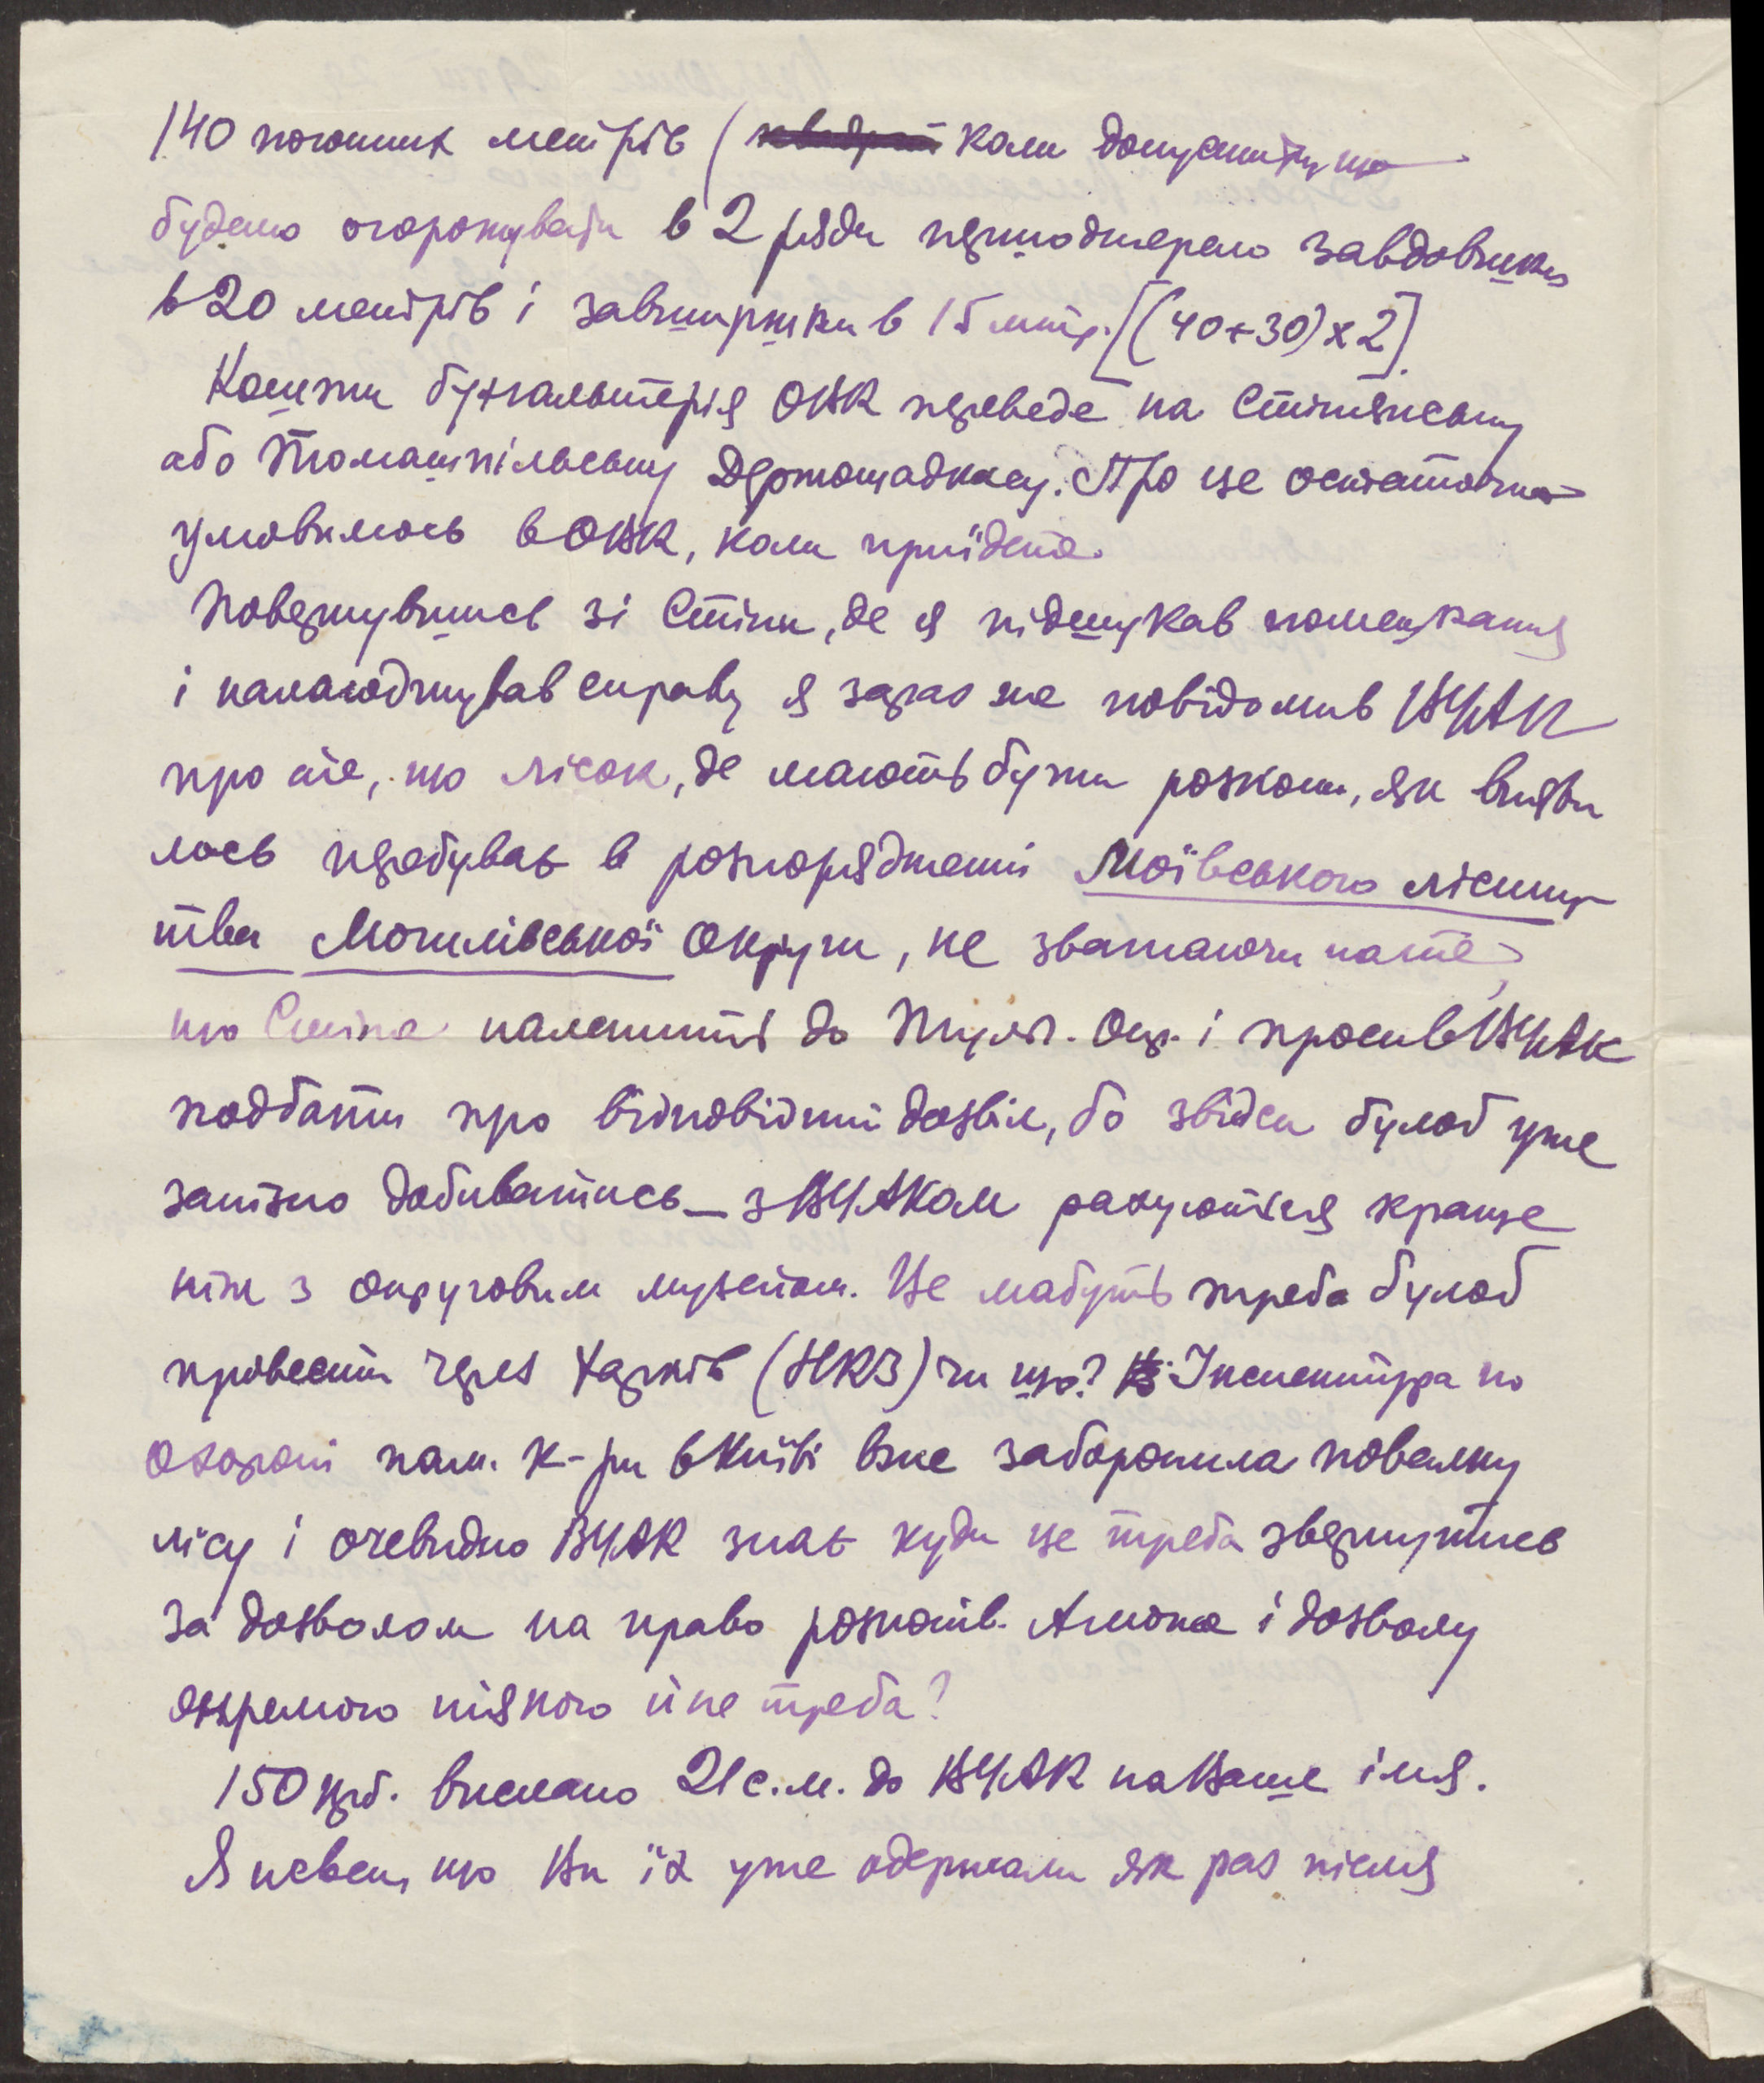 140 погонних метрів (коли допустити, що
будемо огорожувати в 2 ряди прямокутн завдовжки
в 20 метрів і завширшки в 15 мтр. [(40+30)х2].
Кошти бухгальтерія ОВК переведе на Стінянську
або Томашпільську Держощадкасу. Про це остаточно
умовимось в ОВК, коли приїдете.
Повернувшись зі Стіни, де я підшукав помешкання
і налагоджував справу я зараз же повідомив ВУАК
про те, що лісок, де мають бути розкопи, як вияви
лось перебуває в розпорядженні Моївського лісниц
тва Могилівської Округи, не зважаючи на те,
що Стіна належить до Тульч. Окр. і просив ВУАК
подбати про відповідний дозвіл, бо звідси булоб уже
запізно добиватись – з ВУАКом рахуються краще
ніж з округовим музейом. Це мабуть треба булоб
провести через Харків (НКЗ) чи що? Інспектура по
охороні пам. к-ри в Київі вже заборонила повалку
лісу і очевидно ВУАК знає куди це треба звернутись
за дозволом на право розкопів. А може і дозволу
окремого ніякого й не треба?
150 крб. вислано 21 с.м. до ВУАК на Ваше ім'я.
Я певен, що Ви їх уже одержали як раз після